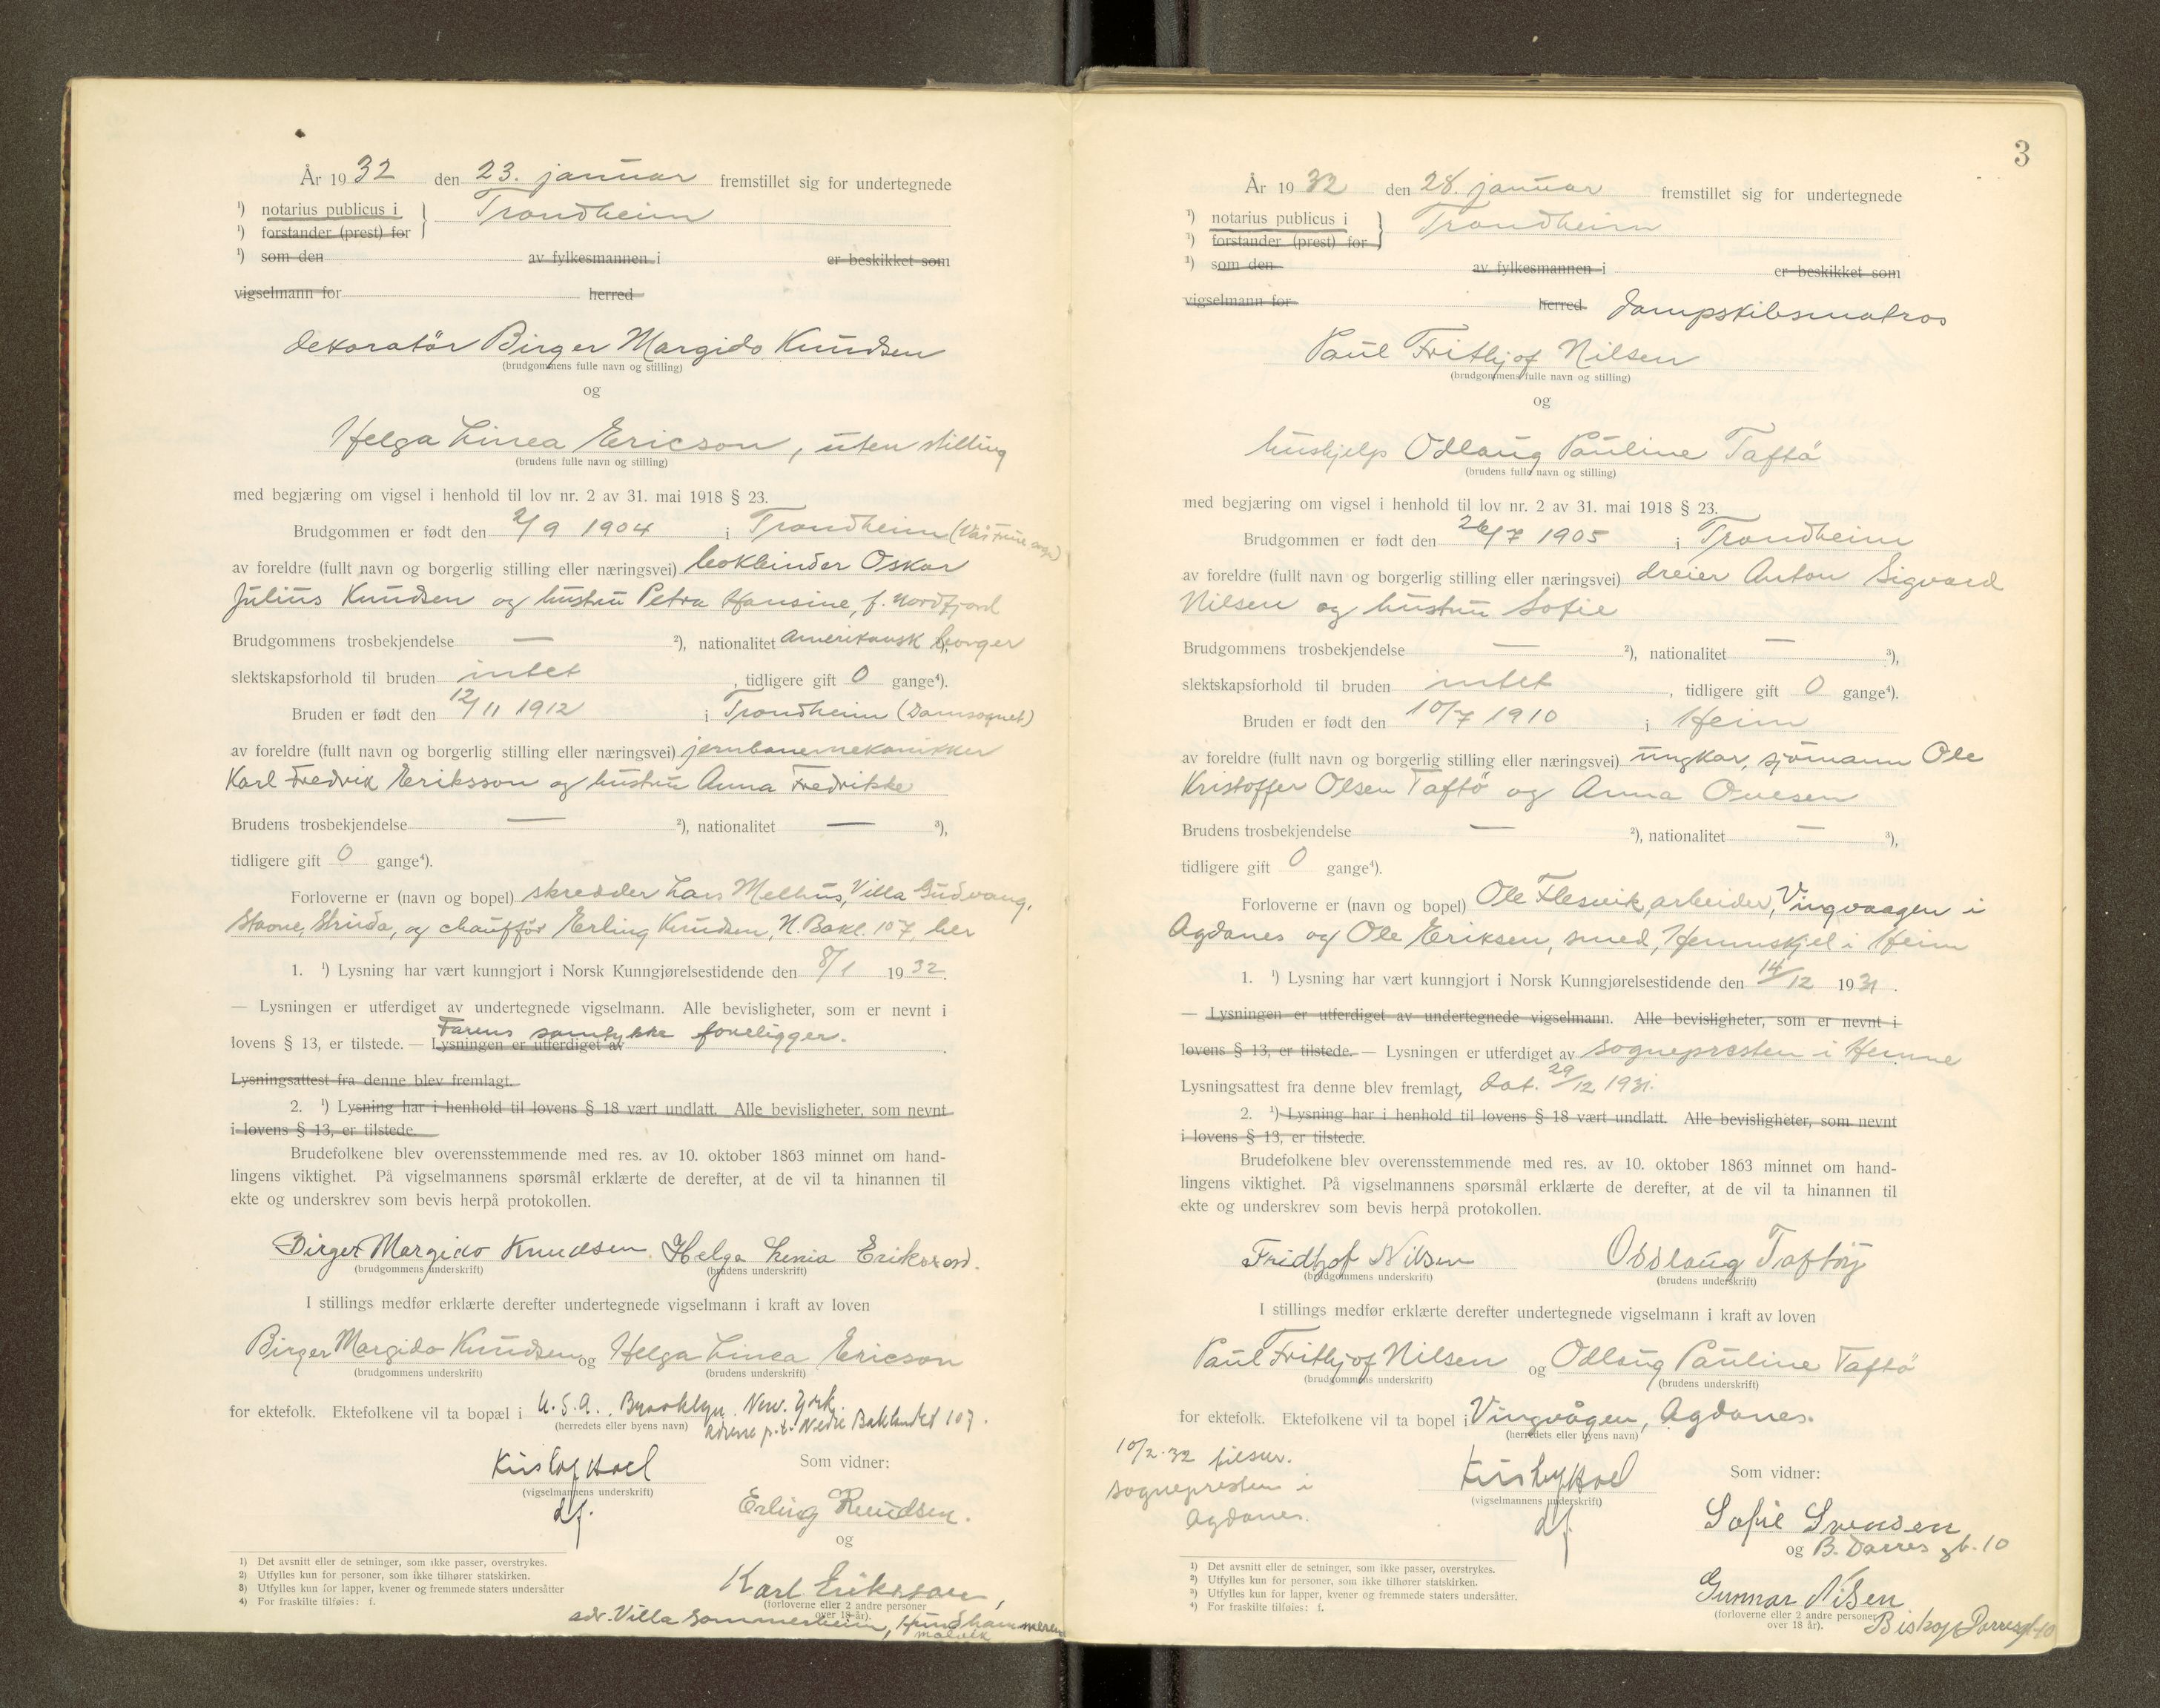 År 1932 den 23. januar fremstillet sig for undertegnede
¹) notarius publicus i } Trondheim
¹) forstander (prest) for
¹) som den av fylkesmannen i er beskikket som
vigselmann for herred
dekoratör Birger Margido Knudsen
(brudgommens fulle navn og stilling)
og
Helga Linea Ericson, uten stilling
(brudens fulle navn og stilling)
med begjæring om vigsel i henhold til lov nr. 2 av 31. mai 1918 § 23.
Brudgommen er født den 2/9 1904 i Trondheim (Vår Frue sogn)
av foreldre (fullt navn og borgerlig stilling eller næringsvei) bokbinder Oskar
Julius Knudsen og hustru Petra Hansine, f. Nordfjord
Brudgommens trosbekjendelse — ²), nationalitet Amerikansk borger ³),
slektskapsforhold til bruden intet, tidligere gift 0 gange⁴).
Bruden er født den 12/11 1912 i Trondheim (Domsognet)
av foreldre (fullt navn og borgerlig stilling eller næringsvei) jernbanemekanikker
Karl Fredrik Eriksson og hustru Anna Fredrikke
Brudens trosbekjendelse — ²), nationalitet — ³),
tidligere gift 0 gange⁴).
Forloverne er (navn og bopel) skredder Lars Melhus, Villa Gudvang,
Stavne, Strinda, og chaufför Erling Knudsen, N. Bakl. 107, her
1. ¹) Lysning har vært kunngjort i Norsk Kunngjørelsestidende den 8/1 1932.
— Lysningen er utferdiget av undertegnede vigselmann. Alle bevisligheter, som er nevnt i
Farens samtykke foreligger.
lovens § 13, er tilstede. — Lysningen er utferdiget av .
Lysningsattest fra denne blev fremlagt.
2. ¹) Lysning har i henhold til lovens § 18 vært undlatt. Alle bevisligheter, som nevnt
i lovens § 13, er tilstede.
Brudefolkene blev overensstemmende med res. av 10. oktober 1863 minnet om hand-
lingens viktighet. På vigselmannens spørsmål erklærte de derefter, at de vil ta hinannen til
ekte og underskrev som bevis herpå protokollen.
Birger Margido Knudsen. Helga Linia Eriksson.
(brudgommens underskrift) (brudens underskrift)
I stillings medfør erklærte derefter undertegnede vigselmann i kraft av loven
Birger Margido Knudsen og Helga Linea Ericson
(brudgommens underskrift) (brudens underskrift)
for ektefolk. Ektefolkene vil ta bopæl i U.S.A. Brooklyn. New. York.
(herredets eller byens navn) adresse p.t. Nedre Baklandet 107.
Som vidner:
(vigselmannens underskrift)
df.
Erling Knudsen.
og
Karl Eriksson,
(forloverne eller 2 andre personer
over 18 år).
adr. Villa Sommerheim, Hundhammeren
Malvik
1) Det avsnitt eller de setninger, som ikke passer, overstrykes.
2) Utfylles kun for personer, som ikke tilhører statskirken.
3) Utfylles kun for lapper, kvener og fremmede staters undersåtter
4) For fraskilte tilføies: f.
3
År 1932 den 28. januar fremstillet sig for undertegnede
¹) notarius publicus i } Trondheim
¹) forstander (prest) for
¹) som den av fylkesmannen i er beskikket som
vigselmann for herred dampskibsmatros
Paul Frithjof Nilsen
(brudgommens fulle navn og stilling)
og
hushjelp Odlaug Pauline Taftö
(brudens fulle navn og stilling)
med begjæring om vigsel i henhold til lov nr. 2 av 31. mai 1918 § 23.
Brudgommen er født den 26/7 1905 i Trondheim
av foreldre (fullt navn og borgerlig stilling eller næringsvei) dreier Anton Sigvard
Nilsen og hustru Sofie
Brudgommens trosbekjendelse — ²), nationalitet — ³),
slektskapsforhold til bruden intet, tidligere gift 0 gange⁴).
Bruden er født den 10/7 1910 i Heim
av foreldre (fullt navn og borgerlig stilling eller næringsvei) ungkar, sjömann Ole
Kristoffer Olsen Taftö og Anna Ovesen
Brudens trosbekjendelse — ²), nationalitet — ³),
tidligere gift 0 gange⁴).
Forloverne er (navn og bopel) Ole Flesvik, arbeider, Vingvaagen i
Agdanes og Ole Eriksen, smed, Hemnskjel i Heim
1. ¹) Lysning har vært kunngjort i Norsk Kunngjørelsestidende den 14/12 1931.
— Lysningen er utferdiget av undertegnede vigselmann. Alle bevisligheter, som er nevnt i
lovens § 13, er tilstede. — Lysningen er utferdiget av sognepresten i Hemne
Lysningsattest fra denne blev fremlagt, dat. 29/12 1931.
2. ¹) Lysning har i henhold til lovens § 18 vært undlatt. Alle bevisligheter, som nevnt
i lovens § 13, er tilstede.
Brudefolkene blev overensstemmende med res. av 10. oktober 1863 minnet om hand-
lingens viktighet. På vigselmannens spørsmål erklærte de derefter, at de vil ta hinannen til
ekte og underskrev som bevis herpå protokollen.
Fridhjof Nilsen Oddlaug Taftöy
(brudgommens underskrift) (brudens underskrift)
I stillings medfør erklærte derefter undertegnede vigselmann i kraft av loven
Paul Frithjof Nilsen og Odlaug Pauline Taftö
(brudgommens underskrift) (brudens underskrift)
for ektefolk. Ektefolkene vil ta bopel i Vingvågen, Agdanes.
(herredets eller byens navn)
10/2.32 tilskr.
sognepresten i
Agdanes.
Som vidner:
(vigselmannens underskrift)
df.
Sofie Svendsen
og B. Darres gt. 10
Gunnar Nilsen
(forloverne eller 2 andre personer
over 18 år).
Biskop Darresgt 10
1) Det avsnitt eller de setninger, som ikke passer, overstrykes.
2) Utfylles kun for personer, som ikke tilhører statskirken.
3) Utfylles kun for lapper, kvener og fremmede staters undersåtter.
4) For fraskilte tilføies: f.